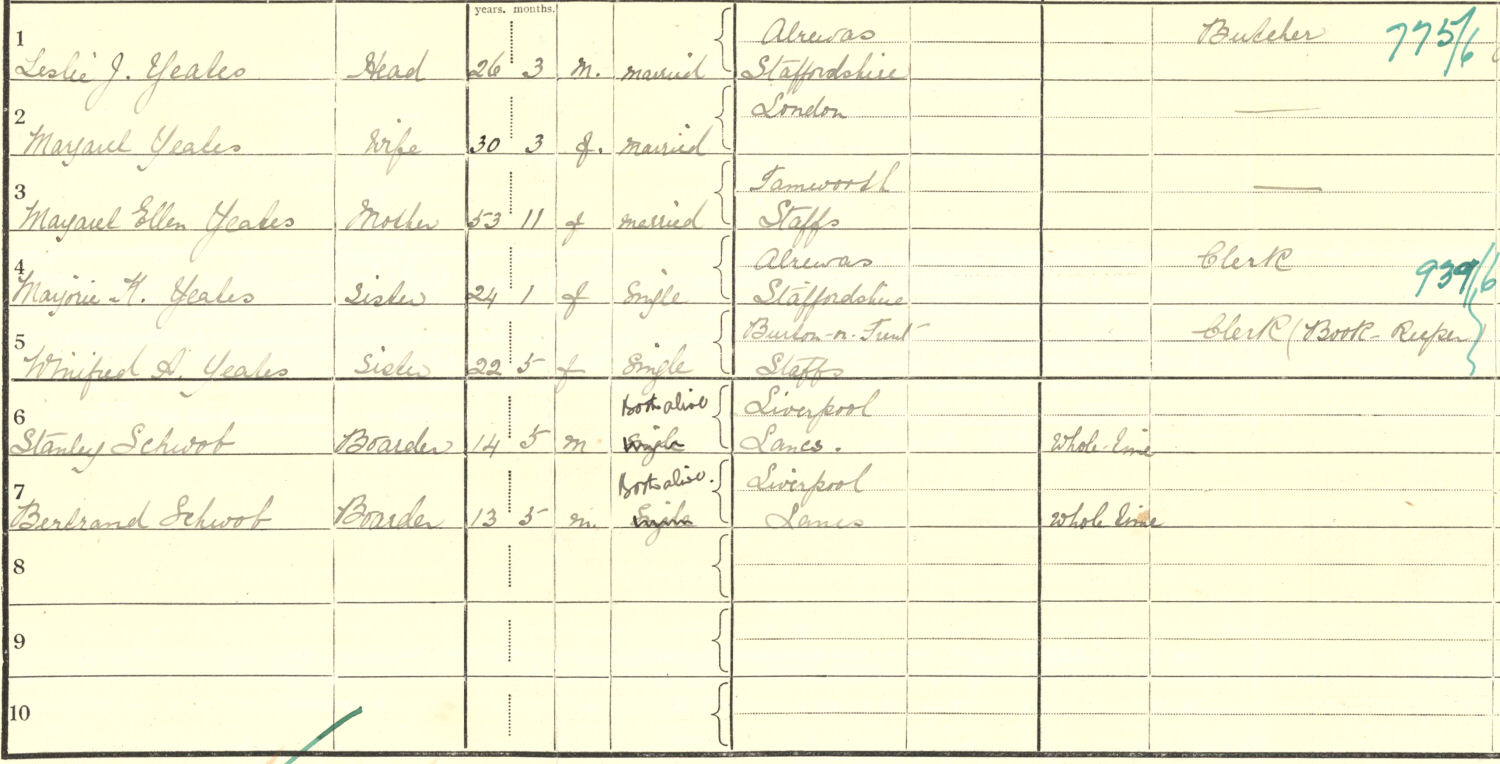 years. months.
1 Alrewas Butcher 775/6
Leslie J. Yeates Head 26 3 M. married Staffordshire
2 London —
Margaret Yeates Wife 30 3 f. married
3 Tamworth —
Margaret Ellen Yeates Mother 53 11 f married Staffs
4 Alrewas Clerk 939/6
Marjorie H. Yeates Sister 24 1 f Single Staffordshire
5 Burton-on-Trent Clerk (Book-Keeper)
Winifred A. Yeates Sister 22 5 f Single Staffs
6 Both alive Liverpool
Stanley Schwob Boarder 14 5 m Single Lancs. Whole-time
7 Both alive. Liverpool
Bertrand Schwob Boarder 13 5 m. Single Lancs Whole time
8
9
10